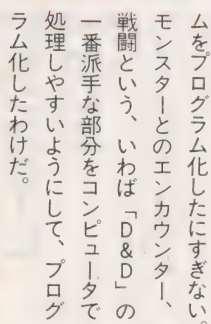 ムをプログラム化したにすぎない。
モンスターとのエンカウンター、
戦闘という、いわば「D&D」の
一番派手な部分をコンピュータで
処理しやすいようにして、プログ
ラム化したわけだ。